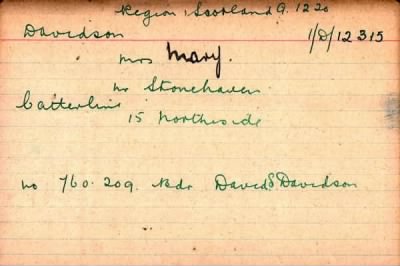 Region, Scotland G. 1220
Davidson 1/D/12315
Mrs Mary.
nr Stonehaven
Catterline
15 Northside
no 760.209. Bdr David S Davidson